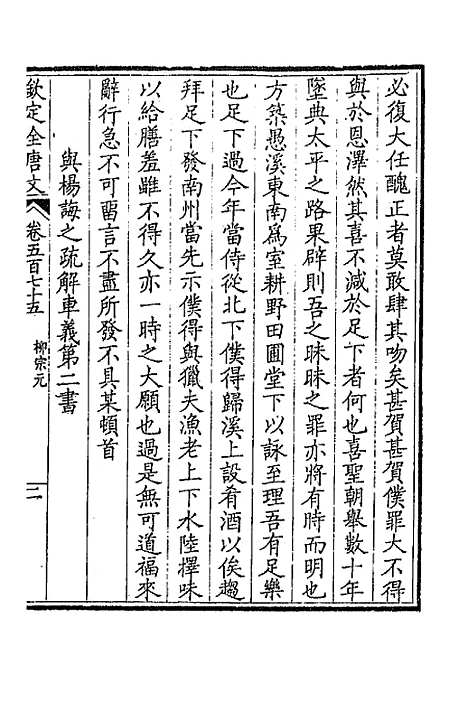 必復大任醜正者莫敢肆其吻矣甚賀甚賀僕罪大不得
與於恩澤然其喜不減於足下者何也喜聖朝舉數十年
墜典太平之路果辟則吾之昧昧之罪亦將有時而明也
方築愚溪東南爲室耕野田圃堂下以詠至理吾有足樂
也足下過今年當侍從北下僕得歸溪上設肴酒以俟趨
拜足下發南州當先示僕得與獵夫漁老上下水陸擇味
以給膳羞雖不得久亦一時之大願也過是無可道福來
辭行急不可留言不盡所發不具某頓首
與楊誨之疏解車義第二書
欽定全唐文
卷五百七十五
柳宗元
二